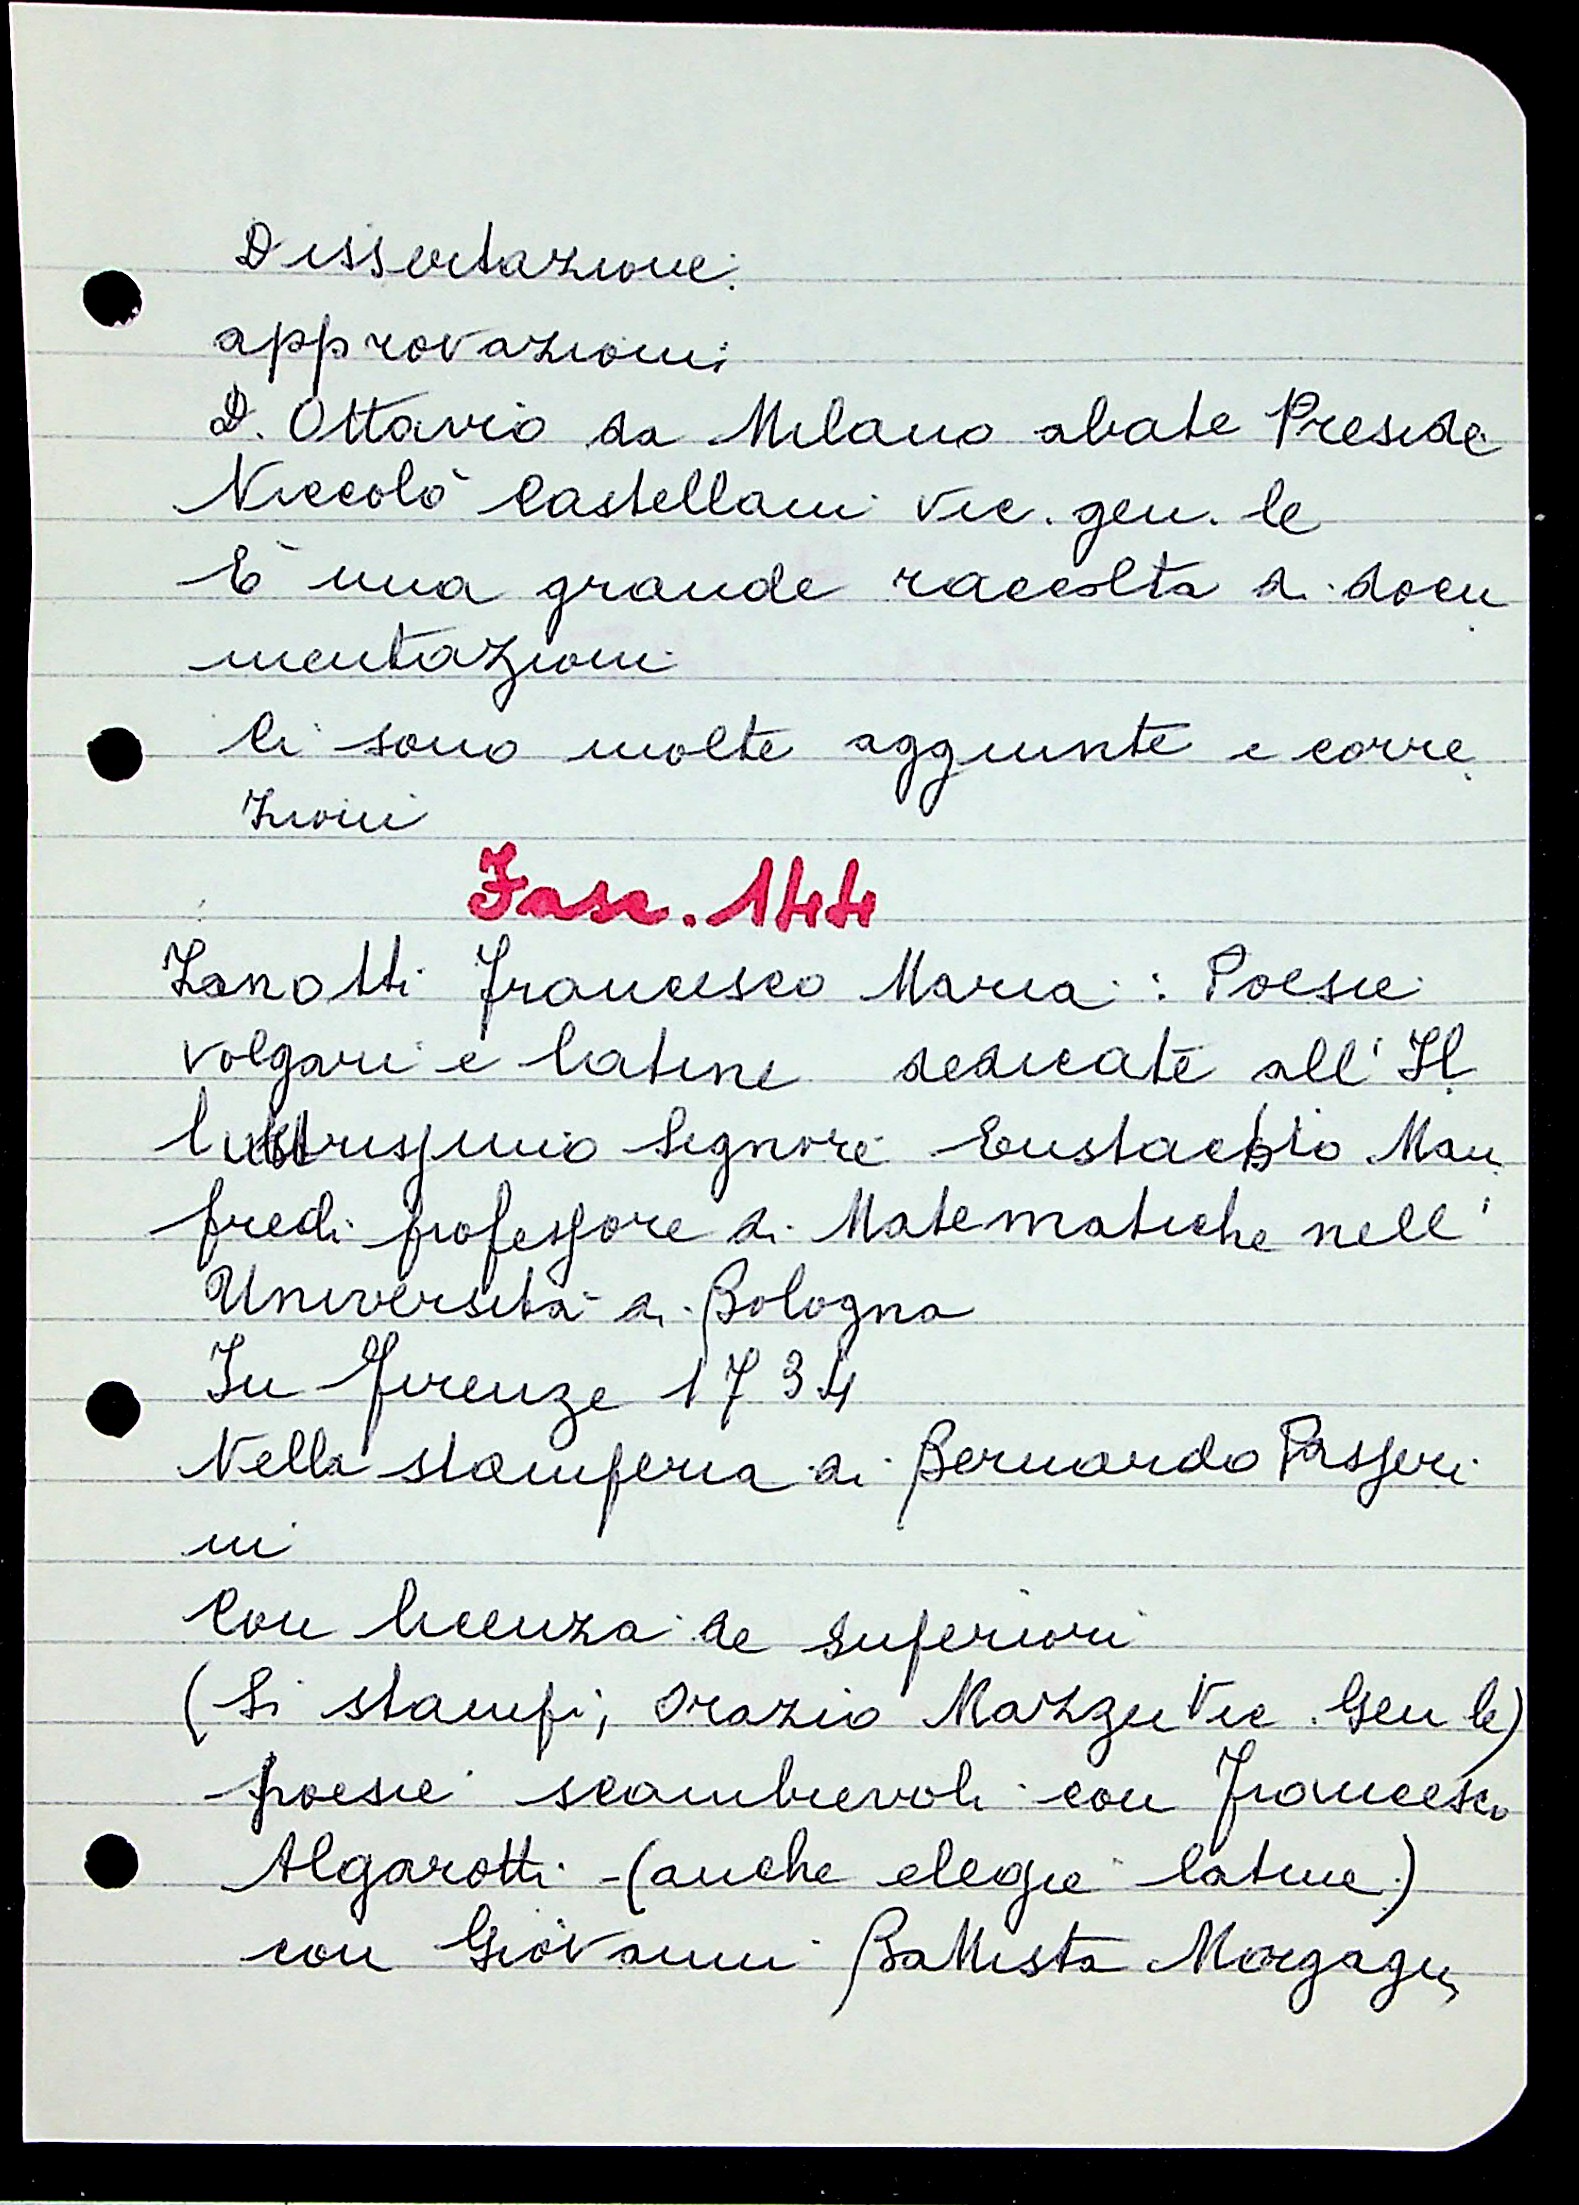 Dissertazione.
approvazioni
D. Ottavio da Milano abate Preside
Niccolò Castellani Vic. gen. le
È una grande raccolta di docu
mentazioni
Ci sono molte aggiunte e corre
zioni
Fasc. 144
Zanotti Francesco Maria : Poesie
volgari e latine dedicate all' Il
lustrissimo Signore Eustachio Man
fredi professore di Matematiche nell'
Università di Bologna
In Firenze 1734
Nella stamperia di Bernardo Passeri
ni
Con licenza de superiori
(Si stampi; Orazio Mazzei Vic. Gen le)
poesie scambievoli con Francesco
Algarotti - (anche elegie latine)
con Giovanni Battista Morgagni